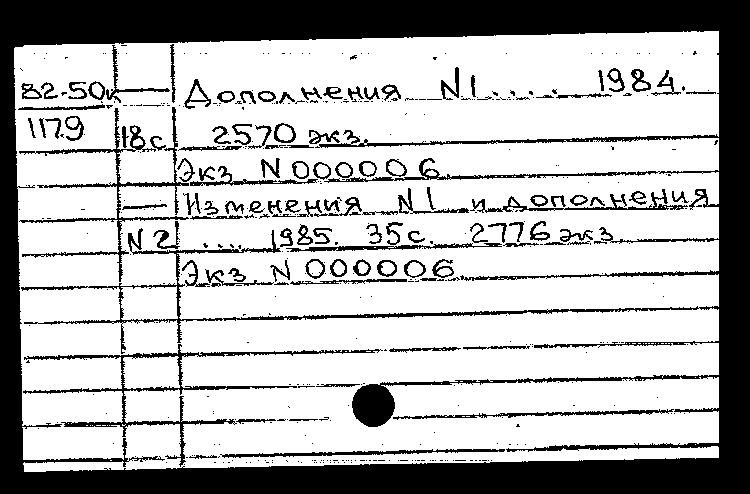 82-50к — Дополнения N1.... 1984.
1179 18с 2570 экз.
Экз. N 000006.
— Изменения N1 и дополнения
N2 .... 1985. 35с. 2776 экз
Экз. N 000006.